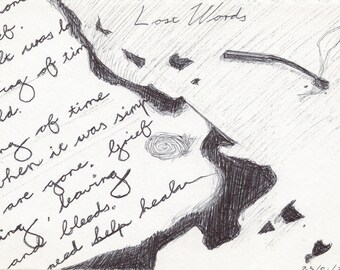 Lost Words
one
ef.
It was l
ing of tim
ld.
ng of time
when it was simp
are gone. Grief
ing, leaving
and bleeds.
need help healin